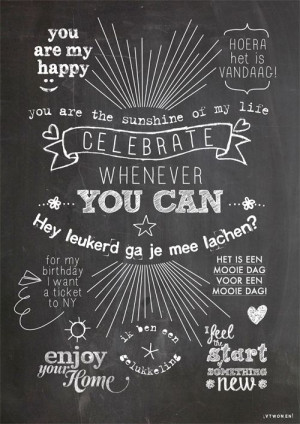 you
are my
happy
HOERA
het is
VANDAAG!
you are the sunshine of my life
CELEBRATE
WHENEVER
YOU CAN
Hey leukerd ga je mee lachen?
for my
birthday
I want
a ticket
to NY
HET IS EEN
MOOIE DAG
VOOR EEN
MOOIE DAG!
ik ben een
gelukkeling
enjoy
your Home
I feel
the
start
of
SOMETHING
new
[VTWONEN]